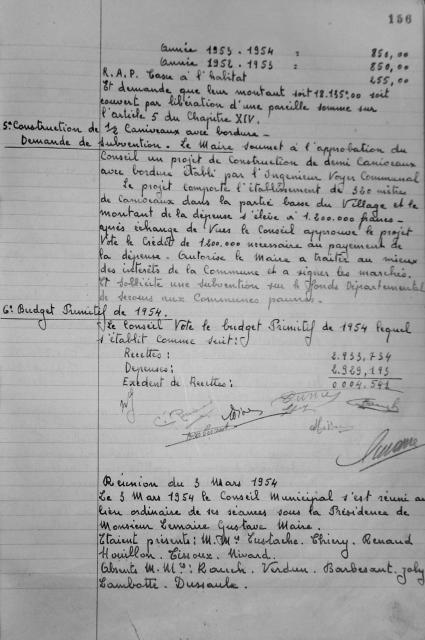 156
Année 1953 - 1954 = 850,00
Année 1952 - 1953 = 850,00
R.A.P. Taxe à l'habitat 255,00
Et demande que leur montant soit 18.135,00 soit
couvert par libération d'une pareille somme sur
l'article 5 du Chapitre XIV.
5° Construction de 1/2 Caniveaux avec bordure -
Demande de subvention. Le Maire soumet à l'approbation du
Conseil un projet de Construction de demi Caniveaux
avec bordure établi par l'Ingenieur Voyer Communal
Le projet comporte l'établissement de 320 mètres
de Caniveaux dans la partie basse du Village et le
montant de la dépense s'élève à 1.200.000 francs -
après échange de Vues le Conseil approuve le projet
Vote le Crédit de 1.200.000 necessaire au payement de
la dépense - Autorise le Maire a traiter au mieux
des intérêts de la Commune et a signer les marchés.
Et sollicite une subvention sur le Fonds Départemental
de secours aux Communes pauvres -
6° Budget Primitif de 1954.
Le Conseil Vote le budget Primitif de 1954 lequel
s'établit comme suit:
Recettes: 2.933,734
Depenses: 2.929,193
Exédent de Recettes: 0004.541
Réunion du 3 Mars 1954
Le 3 Mars 1954 le Conseil Municipal s'est réuni au
lieu ordinaire de ses séances sous la Présidence de
Monsieur Lemaire Gustave Maire.
Etaient présents: M.Mrs Eustache. Thiery. Renaud
Houillon. Tissoux. Nivard.
Absents M.Mrs: Rauch. Verdun. Barbesant. Joly
Lambotte. Dussaulx.